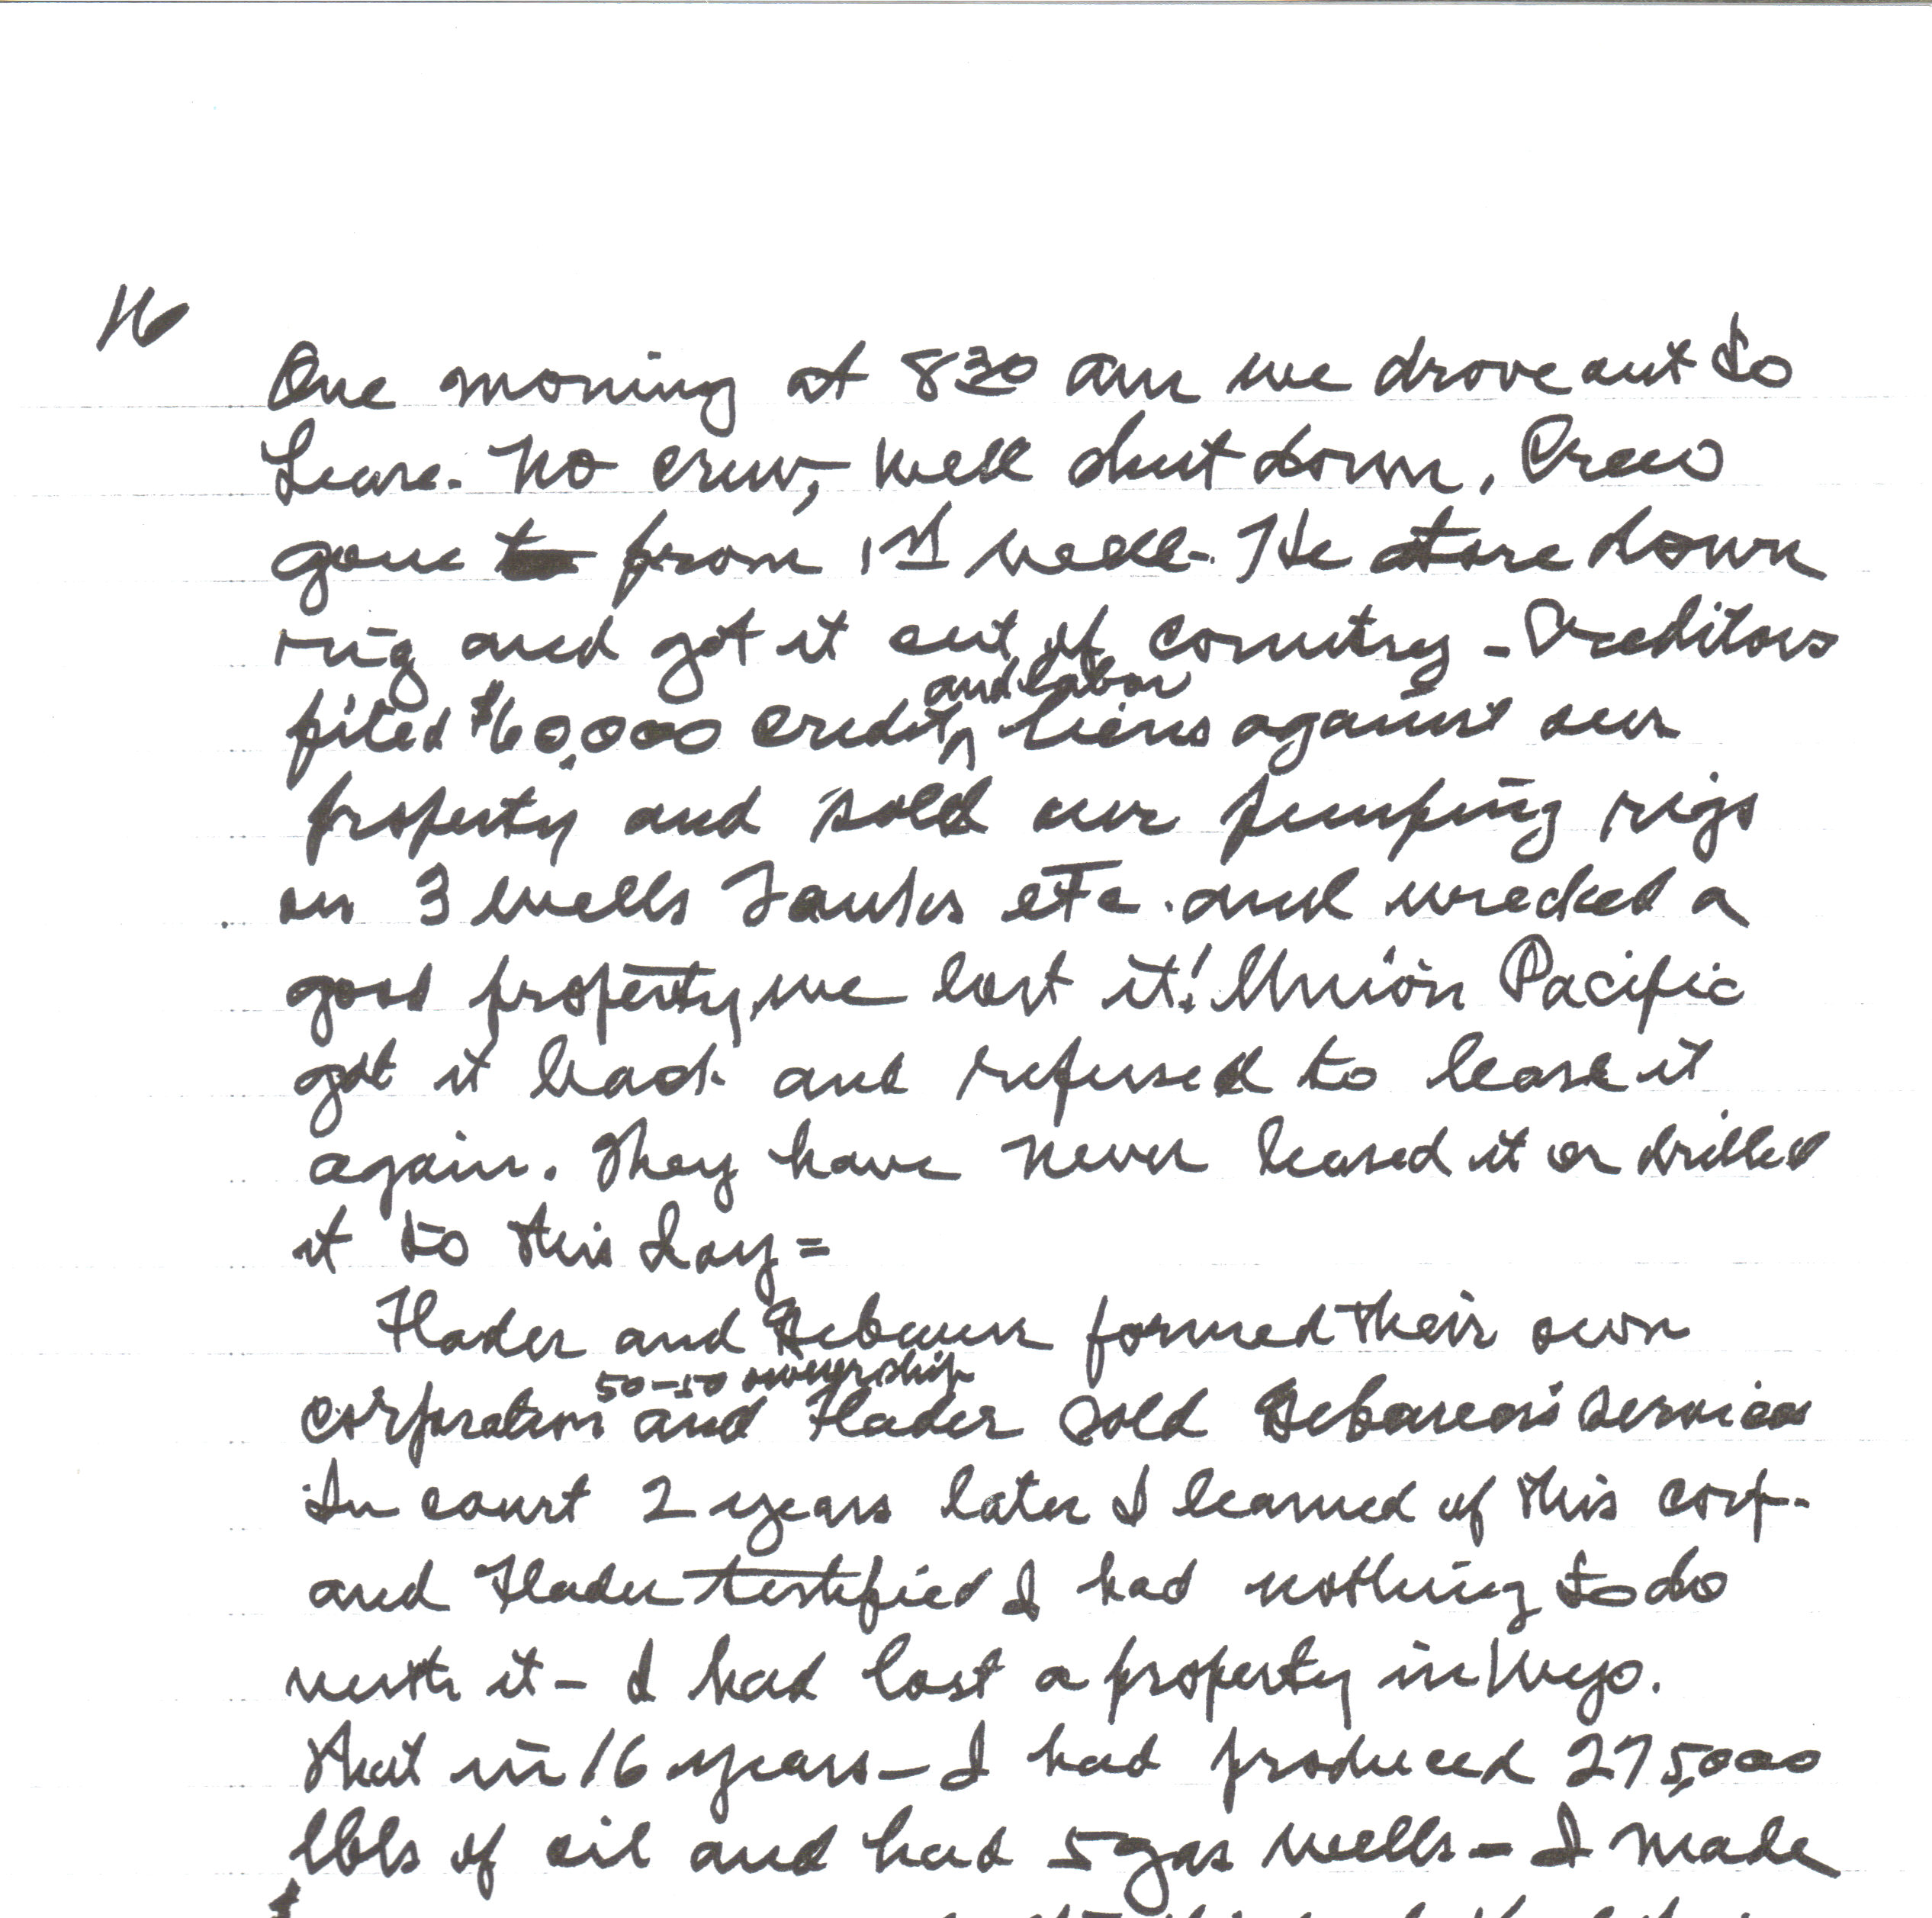 16
One morning at 8 30 am we drove out to
Lease. No crew, well shut down, Crew
gone from 1st well. He tore down
rig and got it out of country - Creditors
and labor
filed $60,000 credit liens against our
property and sold our pumping rigs
on 3 wells Tanks etc. and wrecked a
good property, we lost it! Union Pacific
got it back and refused to lease it
again. They have never leased it or drilled
it to this day =
Hader and formed their own
50-50 ownership
corporation and Hader sold services
In court 2 years later I learned of this corp.
and Hader testified I had nothing to do
with it - I had lost a property in Wyo.
that in 16 years - I had produced 275,000
bbls of oil and had 5 gas wells - I made